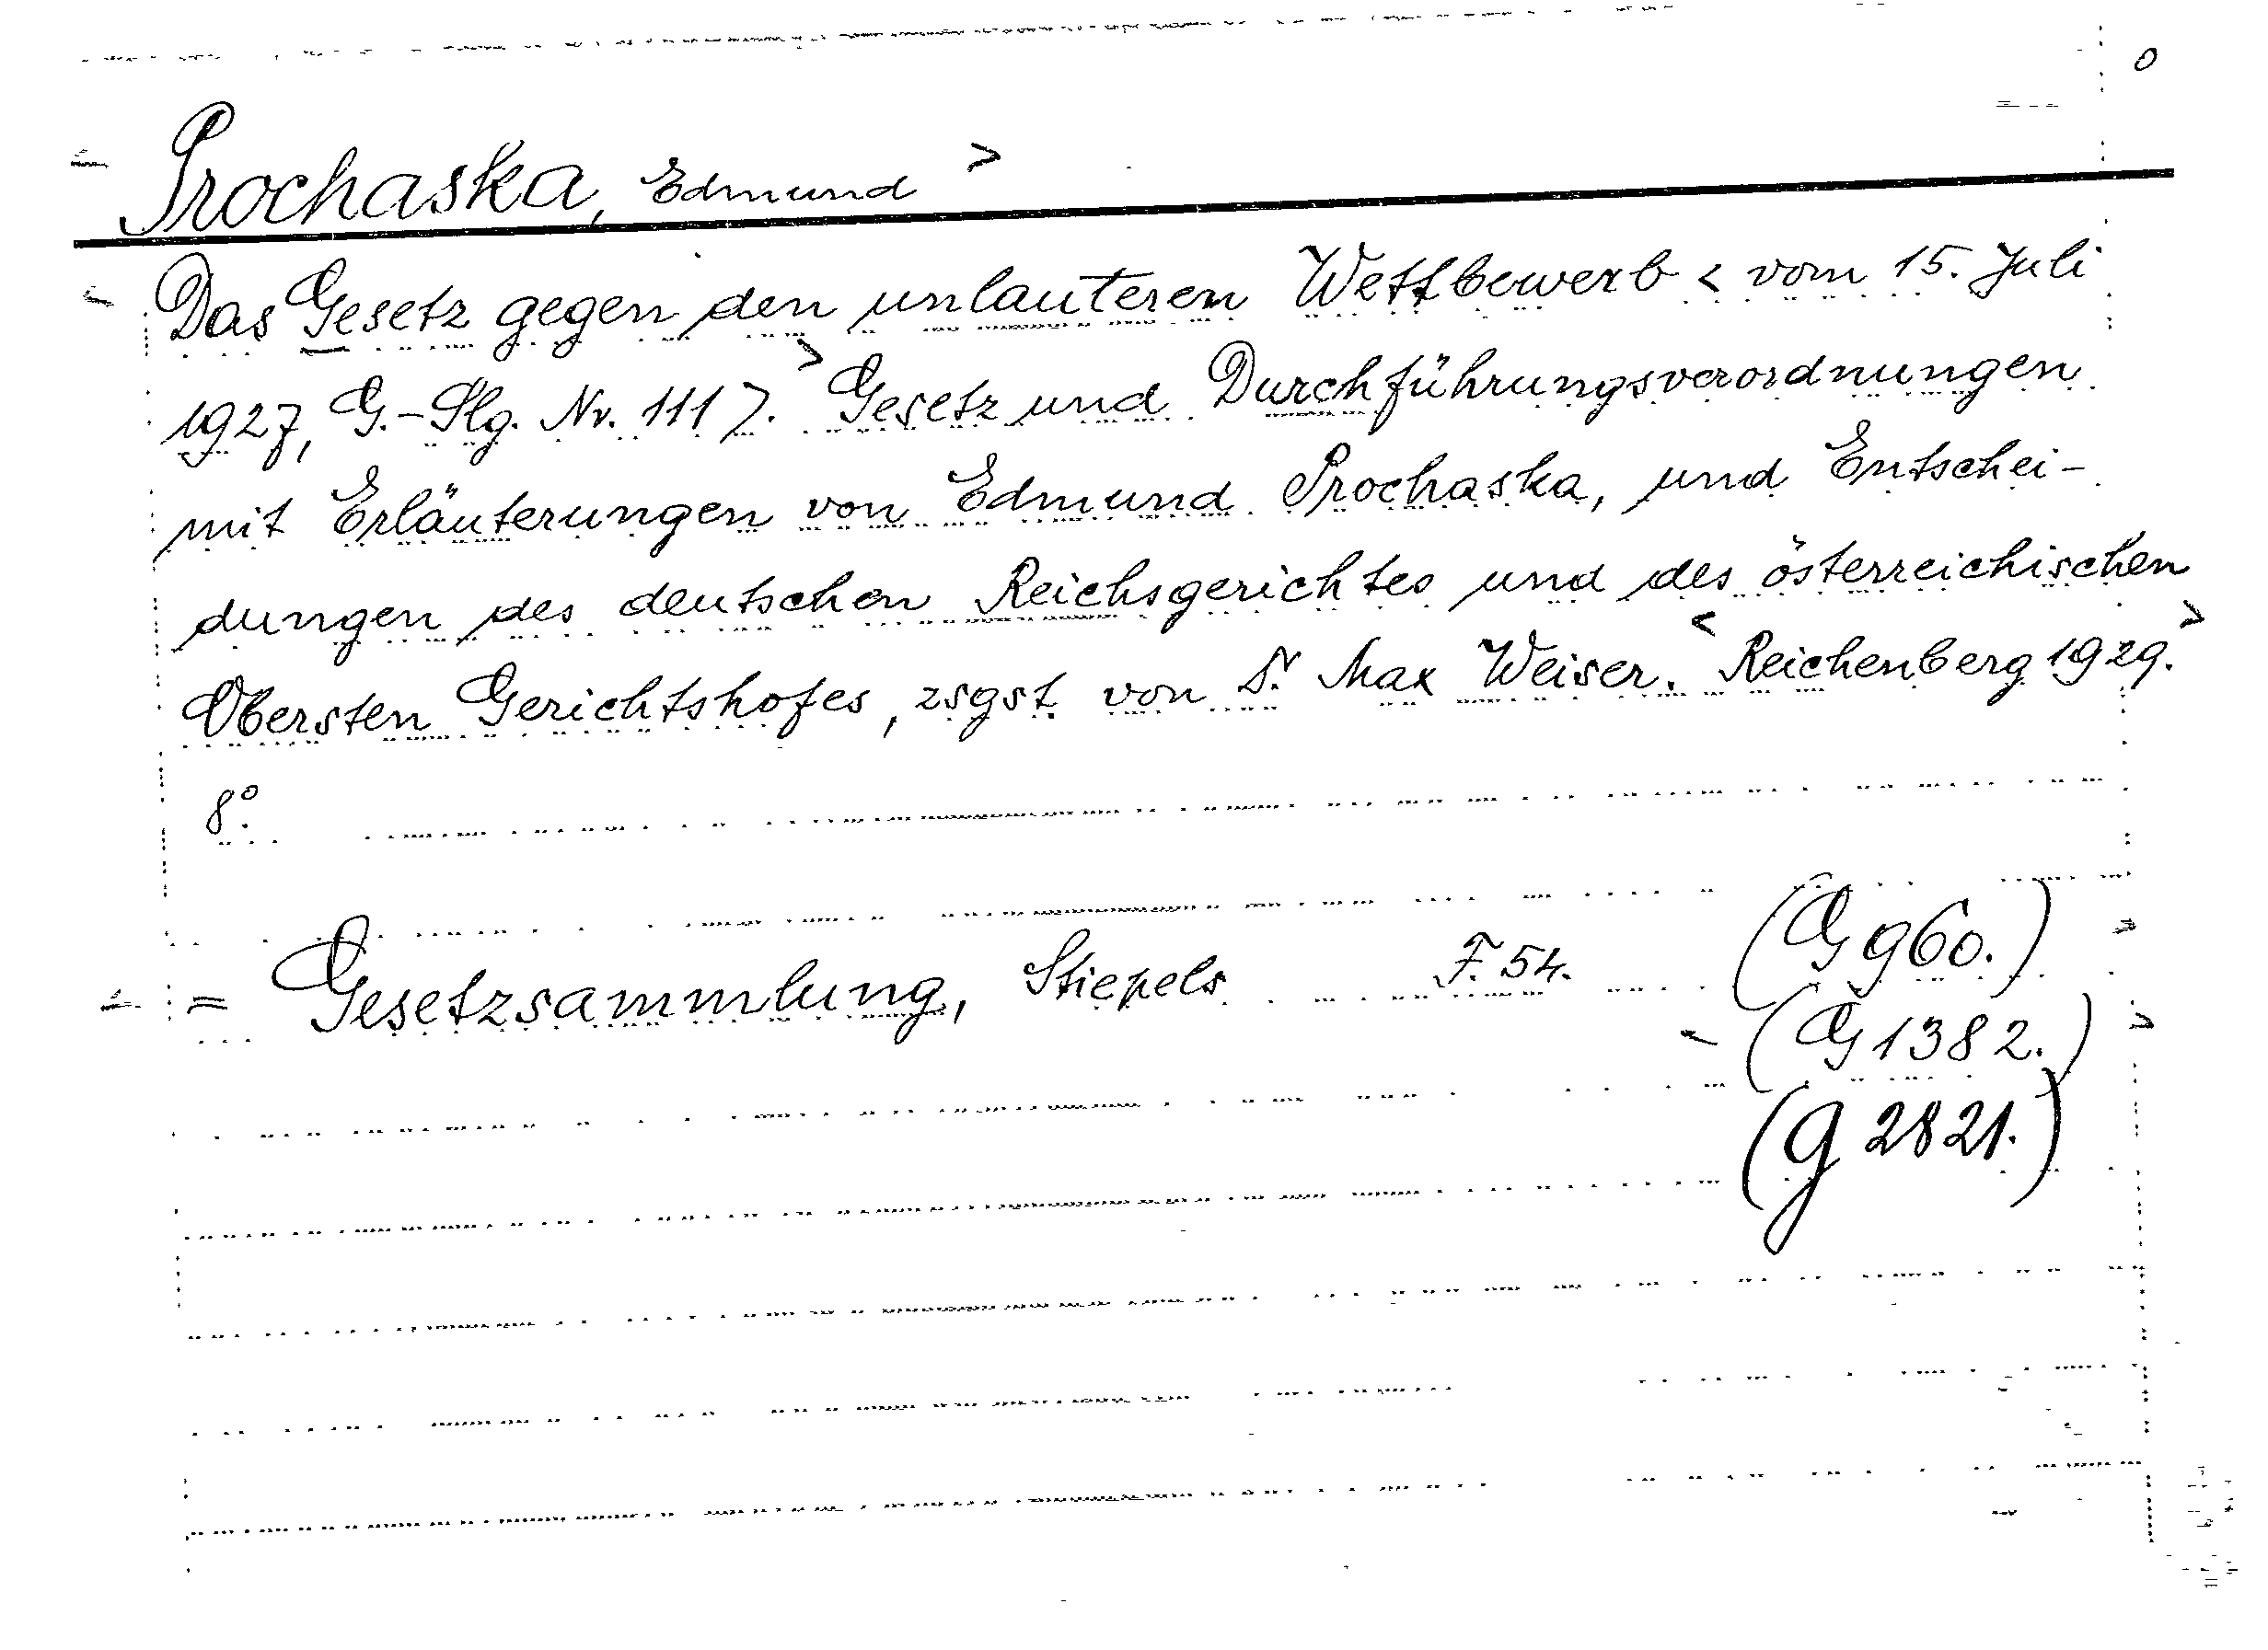 0
Prochaska, Edmund >
Das Gesetz gegen den unlauteren Wettbewerb < vom 15. Juli
1927, G.-Slg. Nr. 111 >. > Gesetz und Durchführungsverordnungen
mit Erläuterungen von Edmund Prochaska, und Entschei-
dungen des deutschen Reichsgerichtes und des österreichischen
Obersten Gerichtshofes, zsgst. von Dr. Max Weiser. < Reichenberg 1929. >
8°.
= Gesetzsammlung, Stiepels F. 54. (G 960.)
(G 1382.)
(G 2821.)